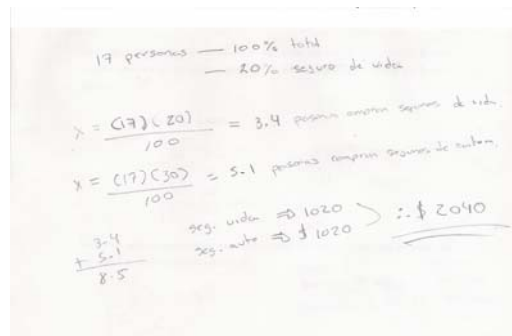 17 personas — 100% total
— 20% seguro de vida
x = (17)(20) / 100 = 3.4 personas compran seguros de vida.
x = (17)(30) / 100 = 5.1 personas compran seguros de autom.
3.4
+ 5.1
8.5
seg. vida ⇒ 1020
seg. auto ⇒ $ 1020
∴ $ 2040